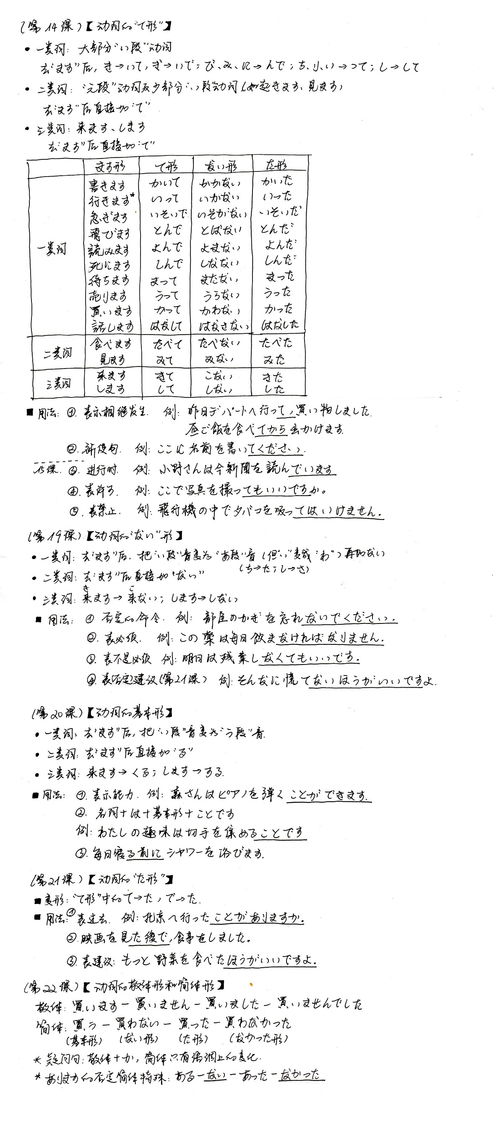 (第14课)【动词的"て形"】
• 一类词: 大部分"い段"动词
去"ます"后, き→いて, ぎ→いで; び、み、に→んで; ち、り、い→って; し→して
• 二类词: "え段"动词及少部分"い段"动词(如起きます、見ます)
去"ます"后直接加"て"
• 三类词: 来ます、します
去"ます"后直接加"て"
ます形 て形 ない形 た形
一类词
書きます かいて かかない かいた
行きます* いって いかない いった
急ぎます いそいで いそがない いそいだ
飛びます とんで とばない とんだ
読みます よんで よまない よんだ
死にます しんで しなない しんだ
待ちます まって またない まった
売ります うって うらない うった
買います かって かわない かった
話します はなして はなさない はなした
二类词
食べます たべて たべない たべた
見ます みて みない みた
三类词
来ます きて こない きた
します して しない した
■ 用法: ① 表示相继发生. 例: 昨日デパートへ行って, 買い物しました.
昼ご飯を食べてから出かけます.
②. 祈使句. 例: ここに名前を書いてください.
15课. ③. 进行时. 例: 小野さんは今新聞を読んでいます
④. 表许可. 例: ここで写真を撮ってもいいですか.
⑤. 表禁止. 例: 飛行機の中でタバコを吸ってはいけません.
(第19课)【动词的"ない"形】
• 一类词: 去"ます"后, 把"い段"音变为"あ段"音 (但"い"变成"わ") 再加ない
(ち→た; し→さ)
• 二类词: 去"ます"后直接加"ない"
• 三类词: 来ます→来ない; します→しない
き こ
■ 用法: ① 否定的命令. 例: 部屋のかぎを忘れないでください.
②. 表必须. 例: この薬は毎日飲まなければなりません.
③. 表不是必须 例: 明日は残業しなくてもいいです.
④ 表否定建议(第21课) 例: そんなに慌てないほうがいいですよ.
(第20课)【动词的基本形】
• 一类词: 去"ます"后, 把"い段"音变为"う段"音.
• 二类词: 去"ます"后直接加"る"
• 三类词: 来ます→くる; します→する.
■ 用法: ①. 表示能力. 例: 森さんはピアノを弾くことができます.
②. 名词+は+基本形+ことです
例: わたしの趣味は切手を集めることです
③. 毎日寝る前に シャワーを浴びます.
(第21课)【动词的"た形"】
■ 变形: "て形"中的て→た, で→だ.
■ 用法: ①表过去. 例: 北京へ行ったことがありますか.
②映画を見た後で, 食事をしました.
③ 表建议: もっと野菜を食べたほうがいいですよ.
(第22课)【动词的敬体形和简体形】
敬体: 買います — 買いません — 買いました — 買いませんでした
简体: 買う — 買わない — 買った — 買わなかった
(基本形) (ない形) (た形) (なかった形)
* 疑问句: 敬体+か, 简体只有语调上的变化.
* ありますの否定简体特殊: ある — ない — あった — なかった